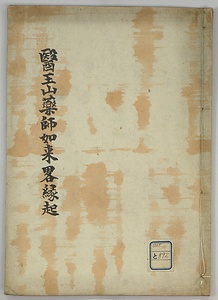 醫王山藥師如来畧縁起